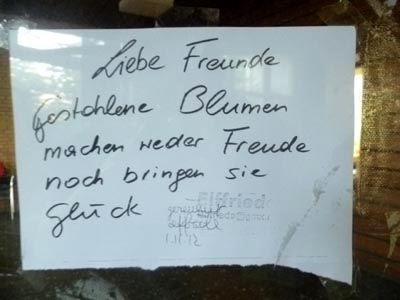 Liebe Freunde
gestohlene Blumen
machen weder Freude
noch bringen sie
glück
Elfriede
1.11.12